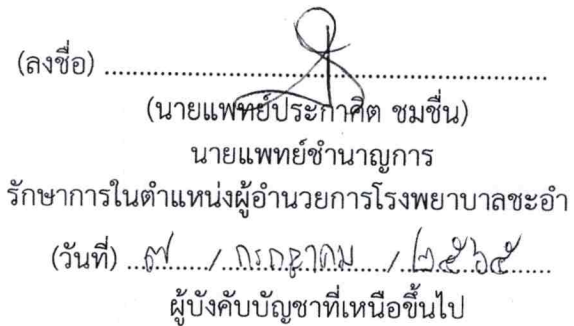 (ลงชื่อ) ................................................................
(นายแพทย์ประกาศิต ชมชื่น)
นายแพทย์ชำนาญการ
รักษาการในตำแหน่งผู้อำนวยการโรงพยาบาลชะอำ
(วันที่) ...๗...../ กรกฎาคม / ๒๕๖๕......
ผู้บังคับบัญชาที่เหนือขึ้นไป